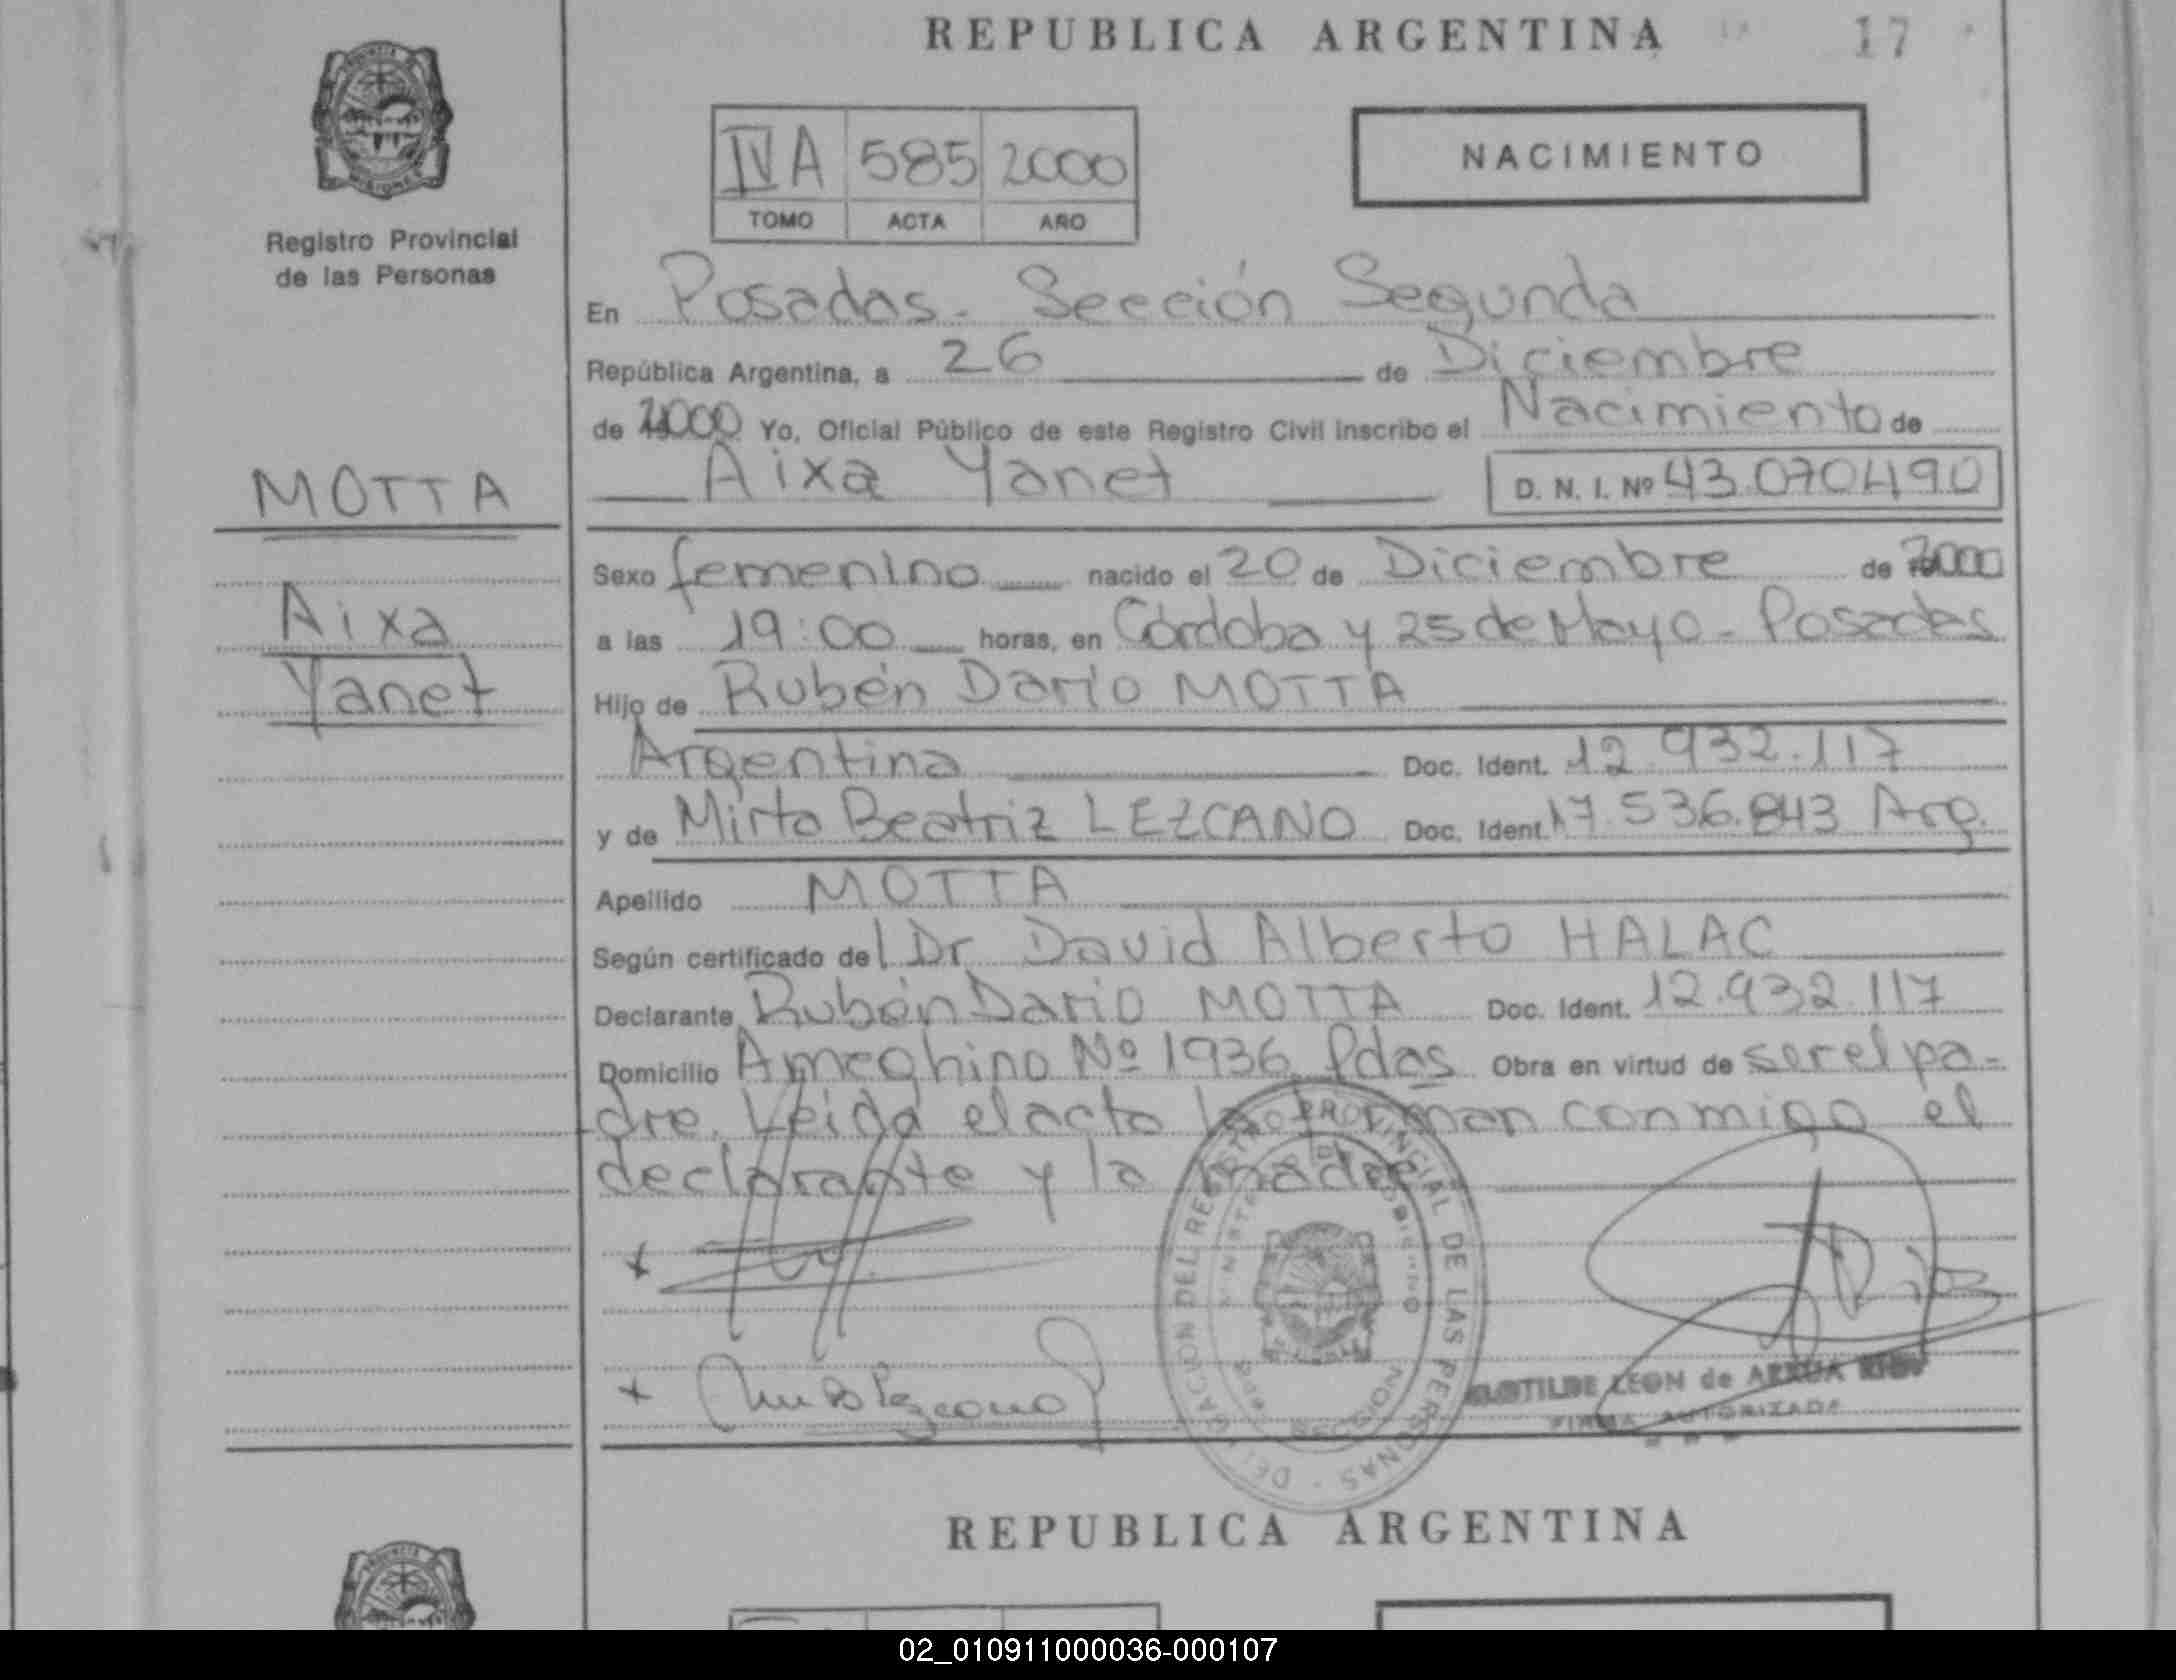 REPUBLICA ARGENTINA 17
IV A 585 2000
TOMO ACTA AÑO
NACIMIENTO
Registro Provincial
de las Personas
En Posadas. Sección Segunda
República Argentina, a 26 de Diciembre
de 2000 Yo, Oficial Público de este Registro Civil inscribo el Nacimiento de
Aixa Yanet D. N. I. Nº 43.070.490
MOTTA
Aixa
Yanet
Sexo femenino nacido el 20 de Diciembre de 2000
a las 19:00 horas, en Córdoba y 25 de Mayo - Posadas
Hijo de Rubén Darío MOTTA
Argentina Doc. Ident. 12.932.117
y de Mirta Beatriz LEZCANO Doc. Ident. 17.536.843 Arg.
Apellido MOTTA
Según certificado del Dr David Alberto HALAC
Declarante Rubén Darío MOTTA Doc. Ident. 12.932.117
Domicilio Ameghino Nº 1936. Pdas Obra en virtud de ser el pa-
dre. Leida el acta la firman conmigo el
declarante y la madre
DELEGACION DEL REGISTRO PROVINCIAL DE LAS PERSONAS
CLOTILDE LEON de
FIRMA AUTORIZADA
REPUBLICA ARGENTINA
02_010911000036-000107